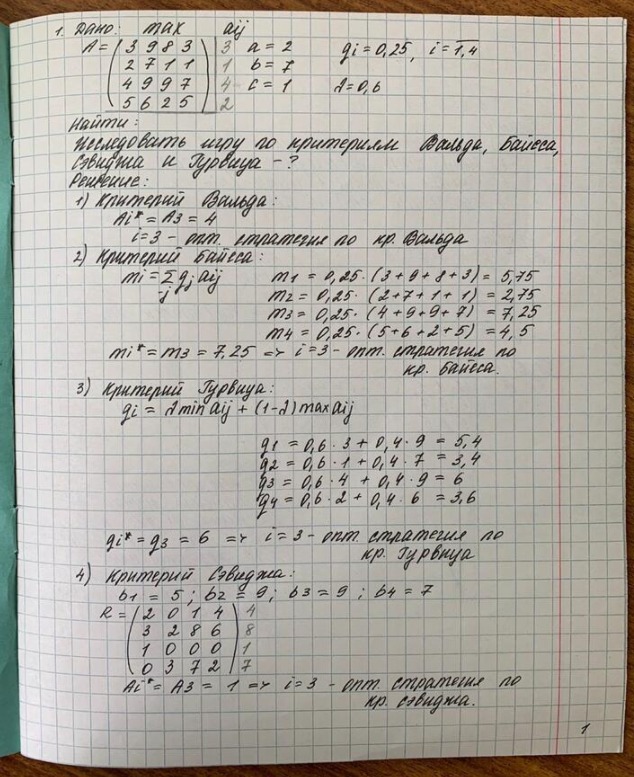 1. Дано: max aij
A = (3 9 8 3) 3 a = 2 gi = 0,25, i = 1,4
2 7 1 1 1 b = 7
4 9 9 7 4 c = 1 λ = 0,6
5 6 2 5 2
Найти:
Исследовать игру по критериям Вальда, Байеса,
Сэвиджа и Гурвица - ?
Решение:
1) Критерий Вальда:
Ai* = A3 = 4
i = 3 - опт. стратегия по кр. Вальда
2) Критерий Байеса:
mi = Σj gj aij m1 = 0,25 · (3+9+8+3) = 5,75
m2 = 0,25 · (2+7+1+1) = 2,75
m3 = 0,25 · (4+9+9+7) = 7,25
m4 = 0,25 · (5+6+2+5) = 4,5
mi* = m3 = 7,25 => i = 3 - опт. стратегия по
кр. Байеса.
3) Критерий Гурвица:
gi = λ min aij + (1-λ) max aij
g1 = 0,6 · 3 + 0,4 · 9 = 5,4
g2 = 0,6 · 1 + 0,4 · 7 = 3,4
g3 = 0,6 · 4 + 0,4 · 9 = 6
g4 = 0,6 · 2 + 0,4 · 6 = 3,6
gi* = g3 = 6 => i = 3 - опт. стратегия по
кр. Гурвица
4) Критерий Сэвиджа:
b1 = 5; b2 = 9; b3 = 9; b4 = 7
R = (2 0 1 4) 4
3 2 8 6 8
1 0 0 0 1
0 3 7 2 7
Ai* = A3 = 1 => i = 3 - опт. стратегия по
кр. Сэвиджа.
1